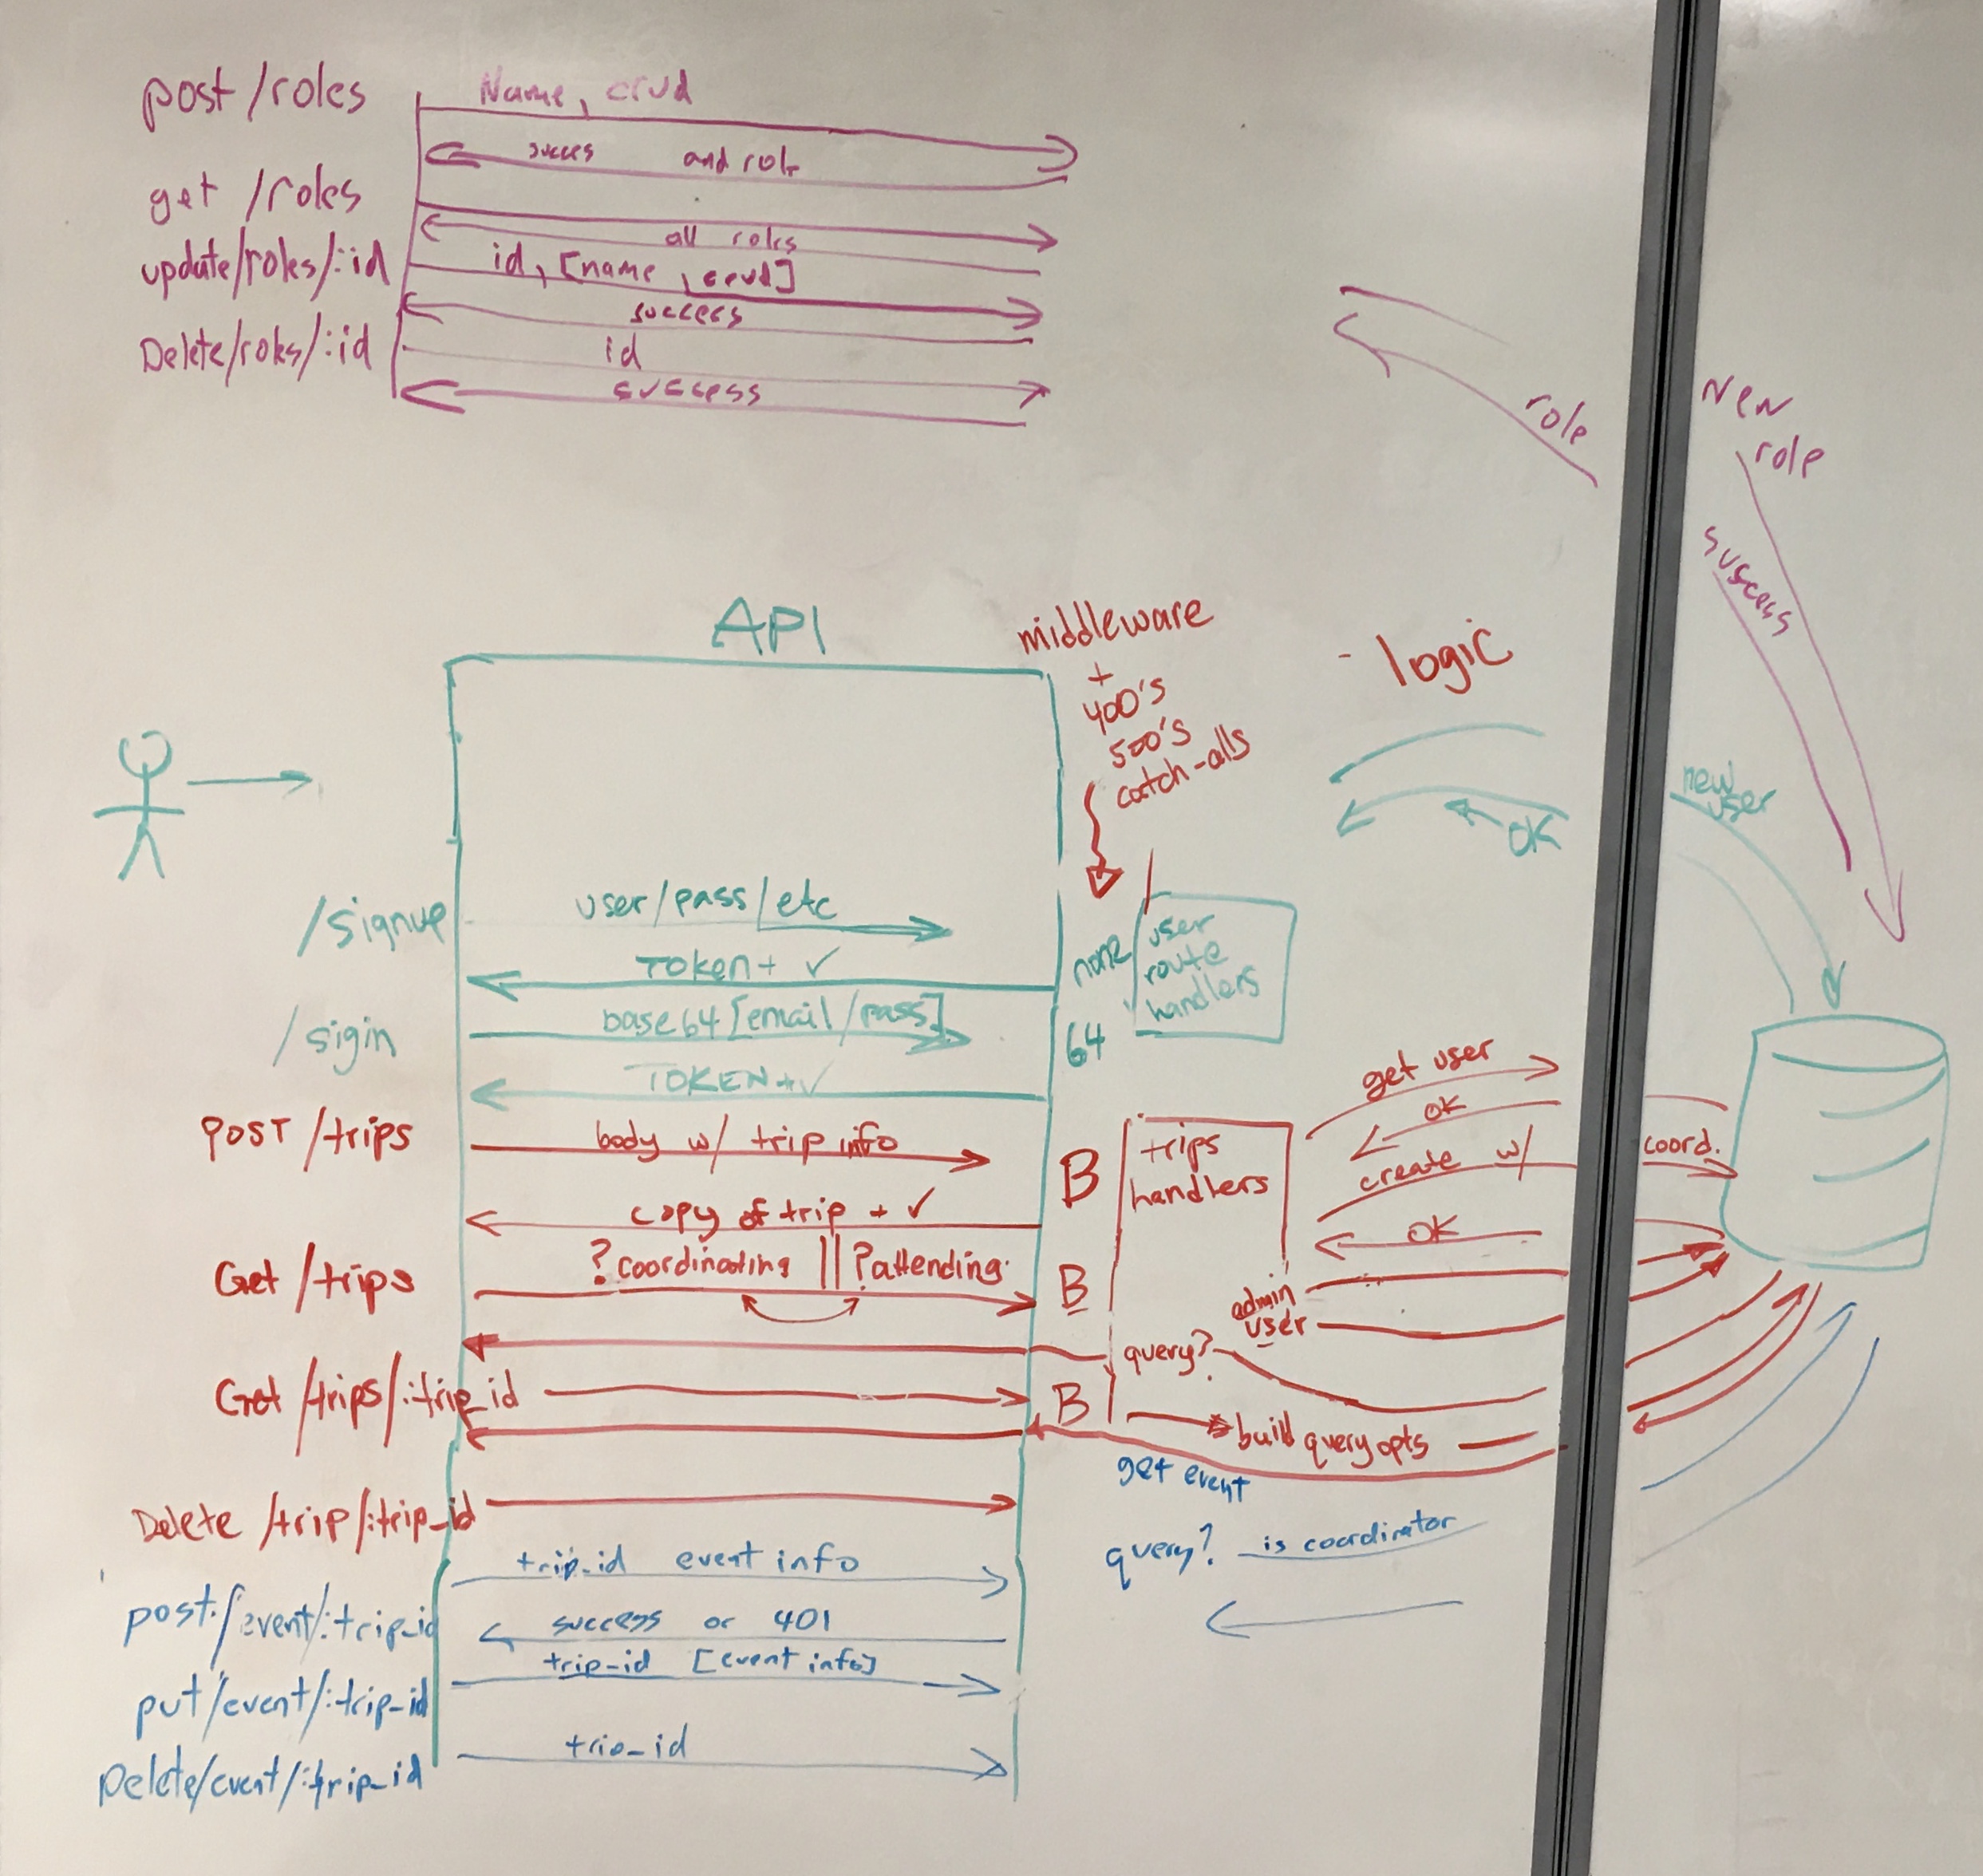 post /roles
Name, crud
succes and role
get /roles
all roles
update/roles/:id
id, [name, crud]
success
Delete/roles/:id
id
success
role
New
role
success
API
middleware
+
400's
500's
catch-alls
- logic
new
user
OK
/signup
user/pass/etc
TOKen + ✓
none
user
route
handlers
/sigin
base64 [email/pass]
64
TOKEN + ✓
get user
OK
POST /trips
body w/ trip info
B
trips
handlers
create w/ coord.
copy of trip + ✓
OK
Get /trips
?coordinating || ?attending
B
admin
user
query?
Get /trips/:trip_id
B
build query opts
get event
Delete /trip/:trip_id
trip_id event info
query? is coordinator
post/event/:trip_id
success or 401
trip_id [event info]
put/event/:trip_id
trip_id
Delete/event/:trip_id